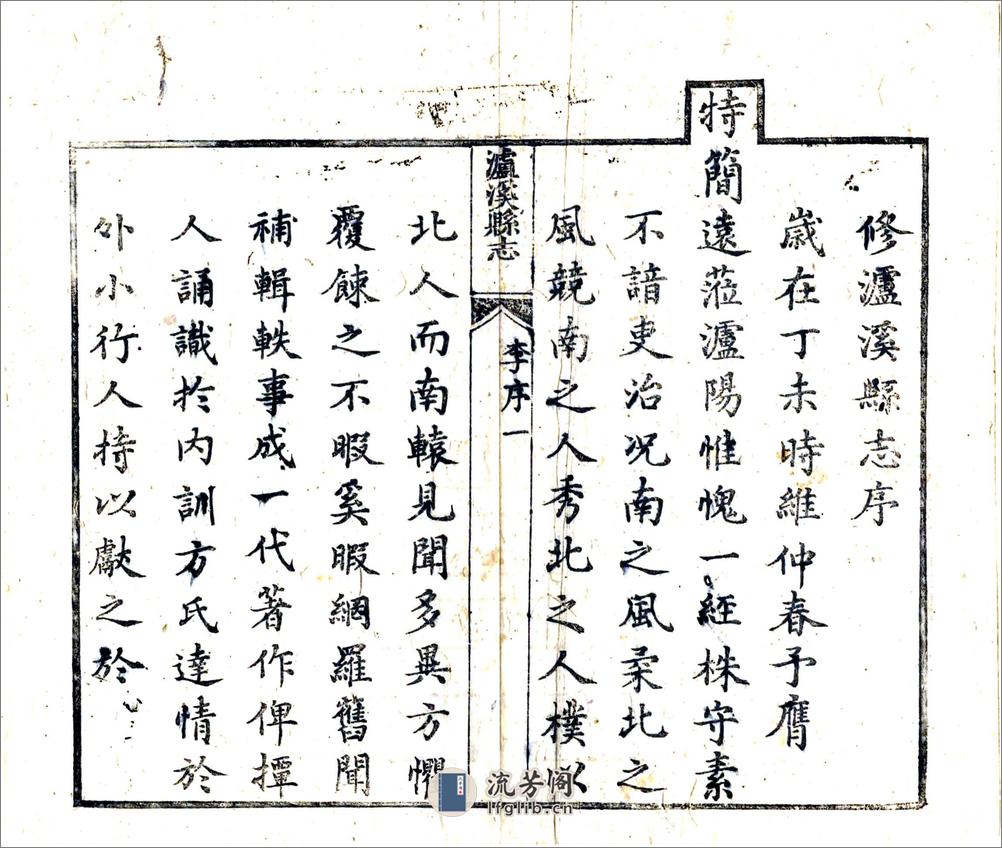 修瀘溪縣志序
歲在丁未時維仲春予膺
特簡遠蒞瀘陽惟愧一經株守素
不諳吏治况南之風柔北之
風競南之人秀北之人樸以
瀘溪縣志
李序
一
北人而南轅見聞多異方懼
覆餗之不暇奚暇網羅舊聞
補輯軼事成一代著作俾撢
人誦識扵内訓方氏達情於
外小行人持以獻之於
流芳阁
lfglib.cn